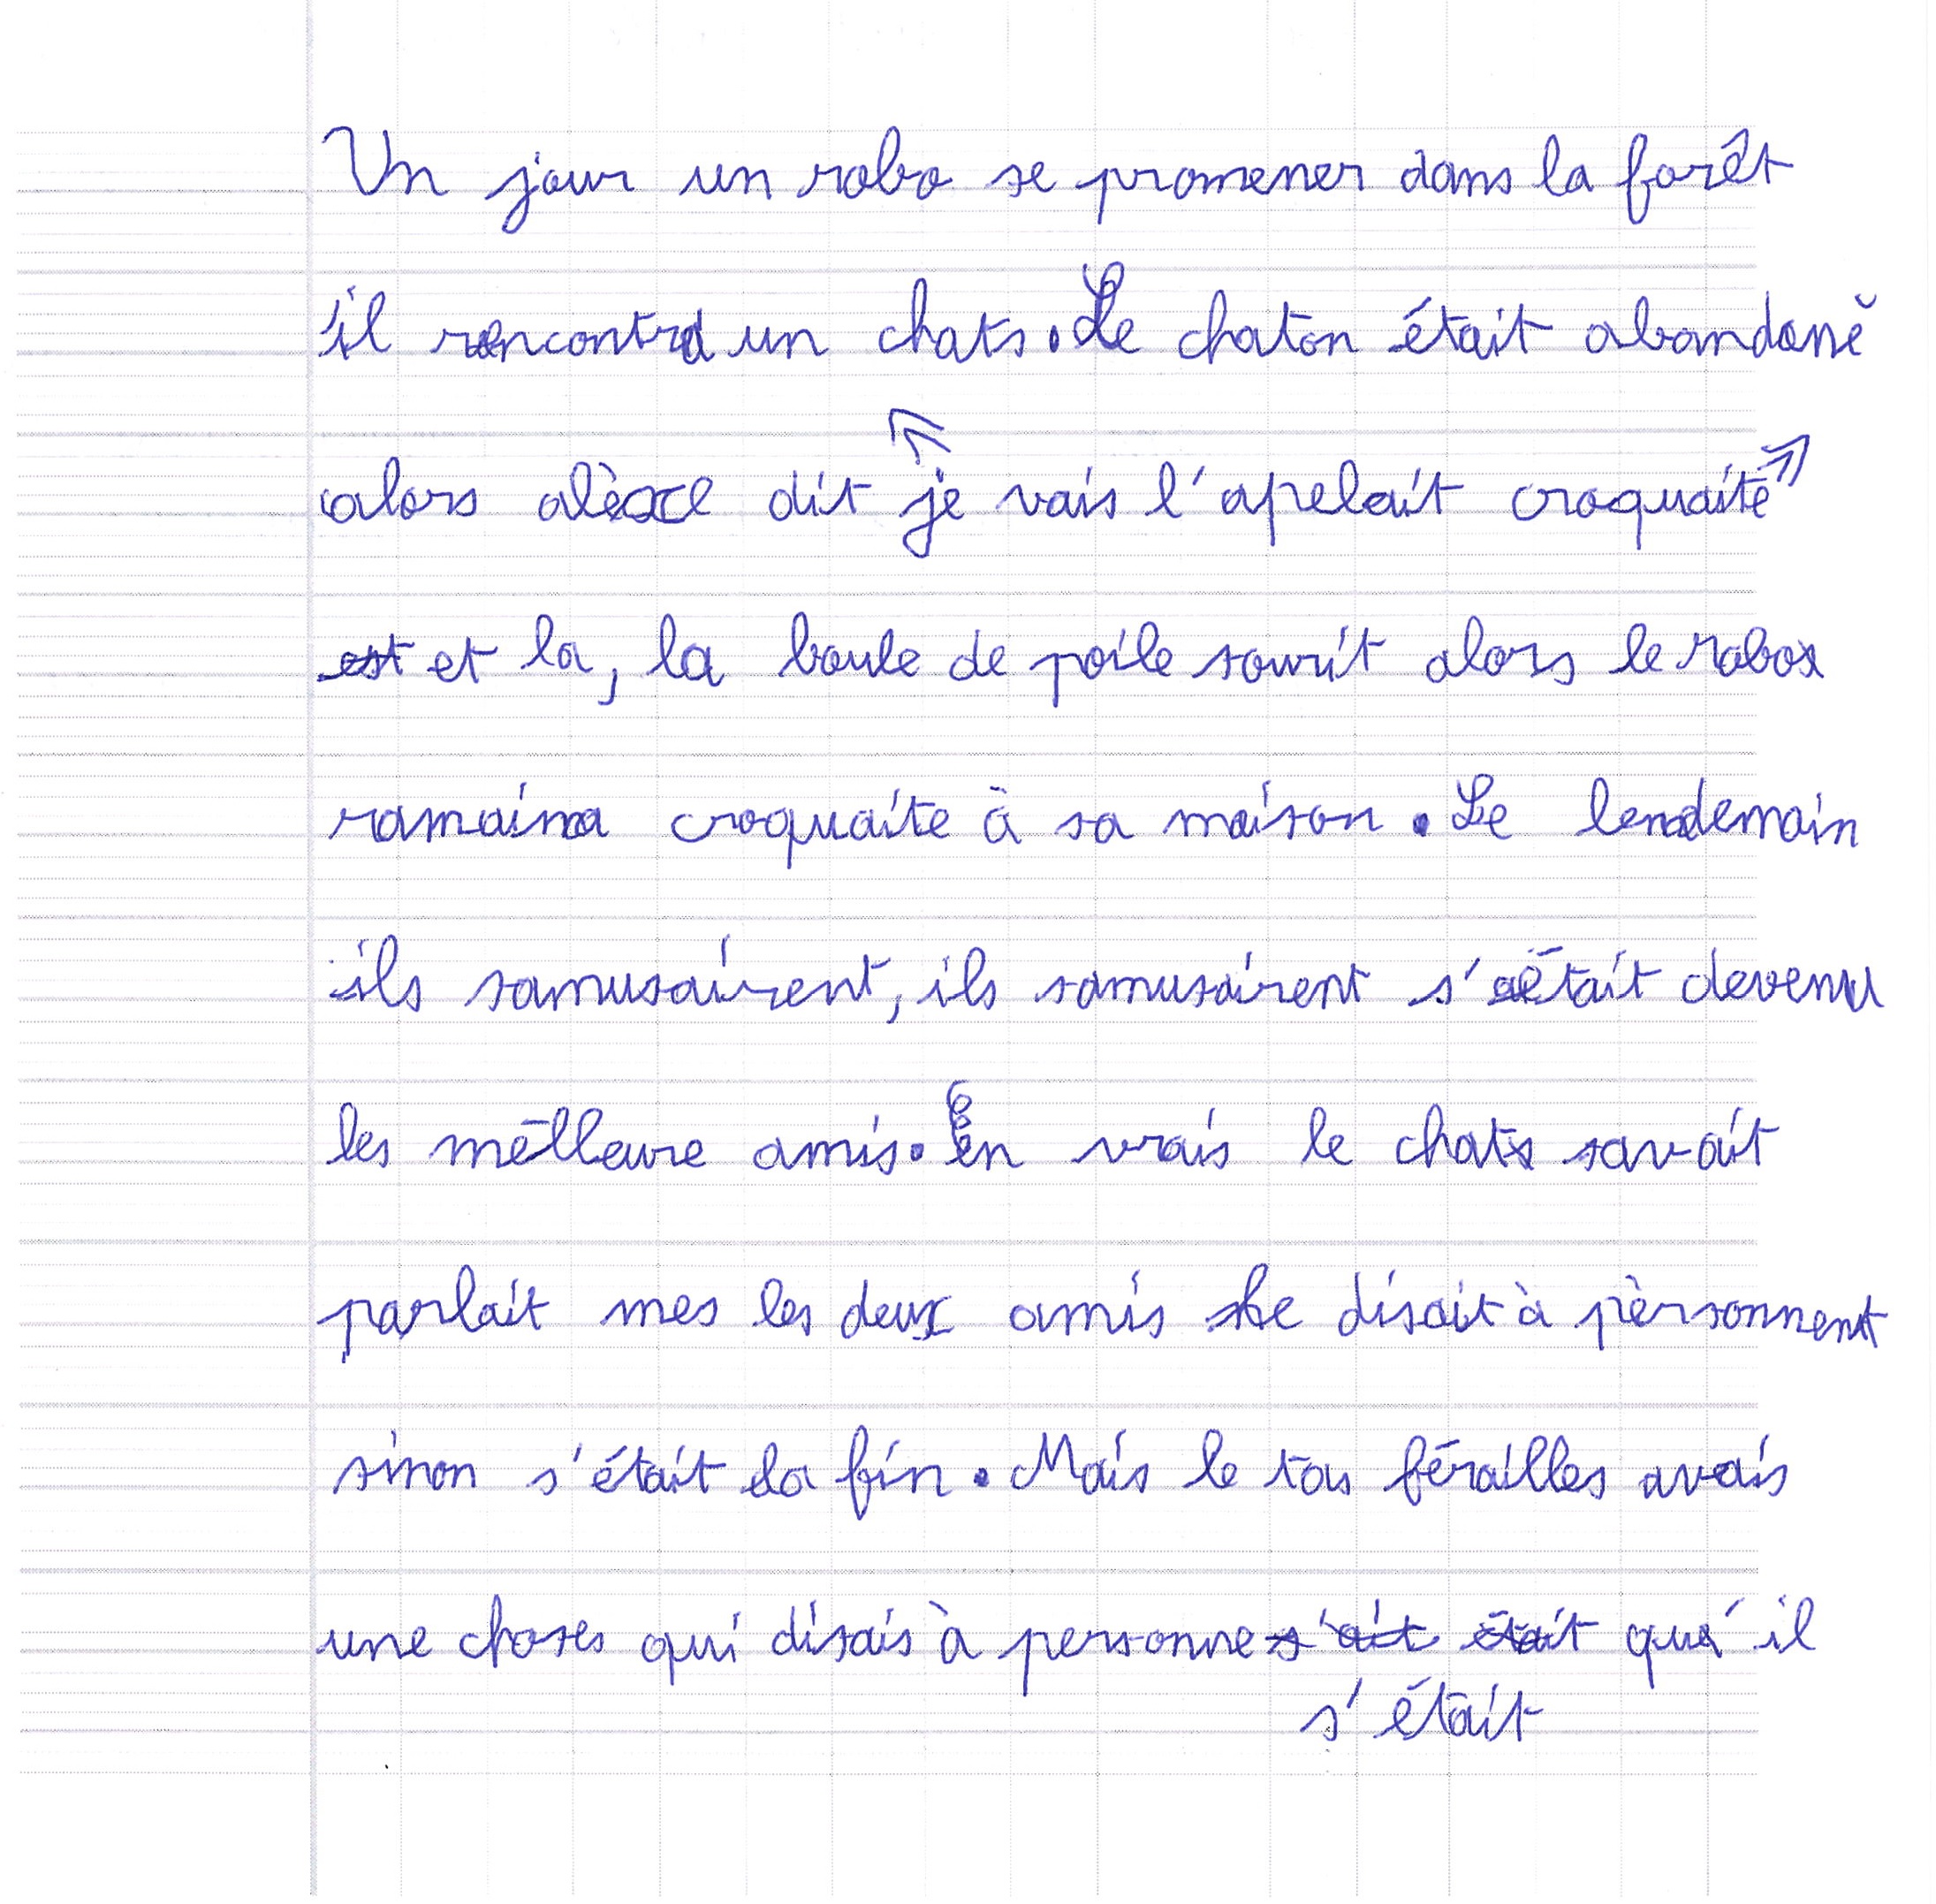 Un jour un robo se promener dans la forêt
il rencontra un chats. Le chaton était abandoné
alors alèxe dit « je vais l'apelait croquaite »
et la, la boule de poile sourit alors le robox
ramaina croquaite à sa maison. Le lendemain
ils samusairent, ils samusairent s'était devenu
les mélleure amis. En vrais le chats savait
parlait mes les deux amis le disait à pèrsonnent
sinon s'était la fin. Mais le tas férailles avais
une choses qui disais à personne qu'il
s'était